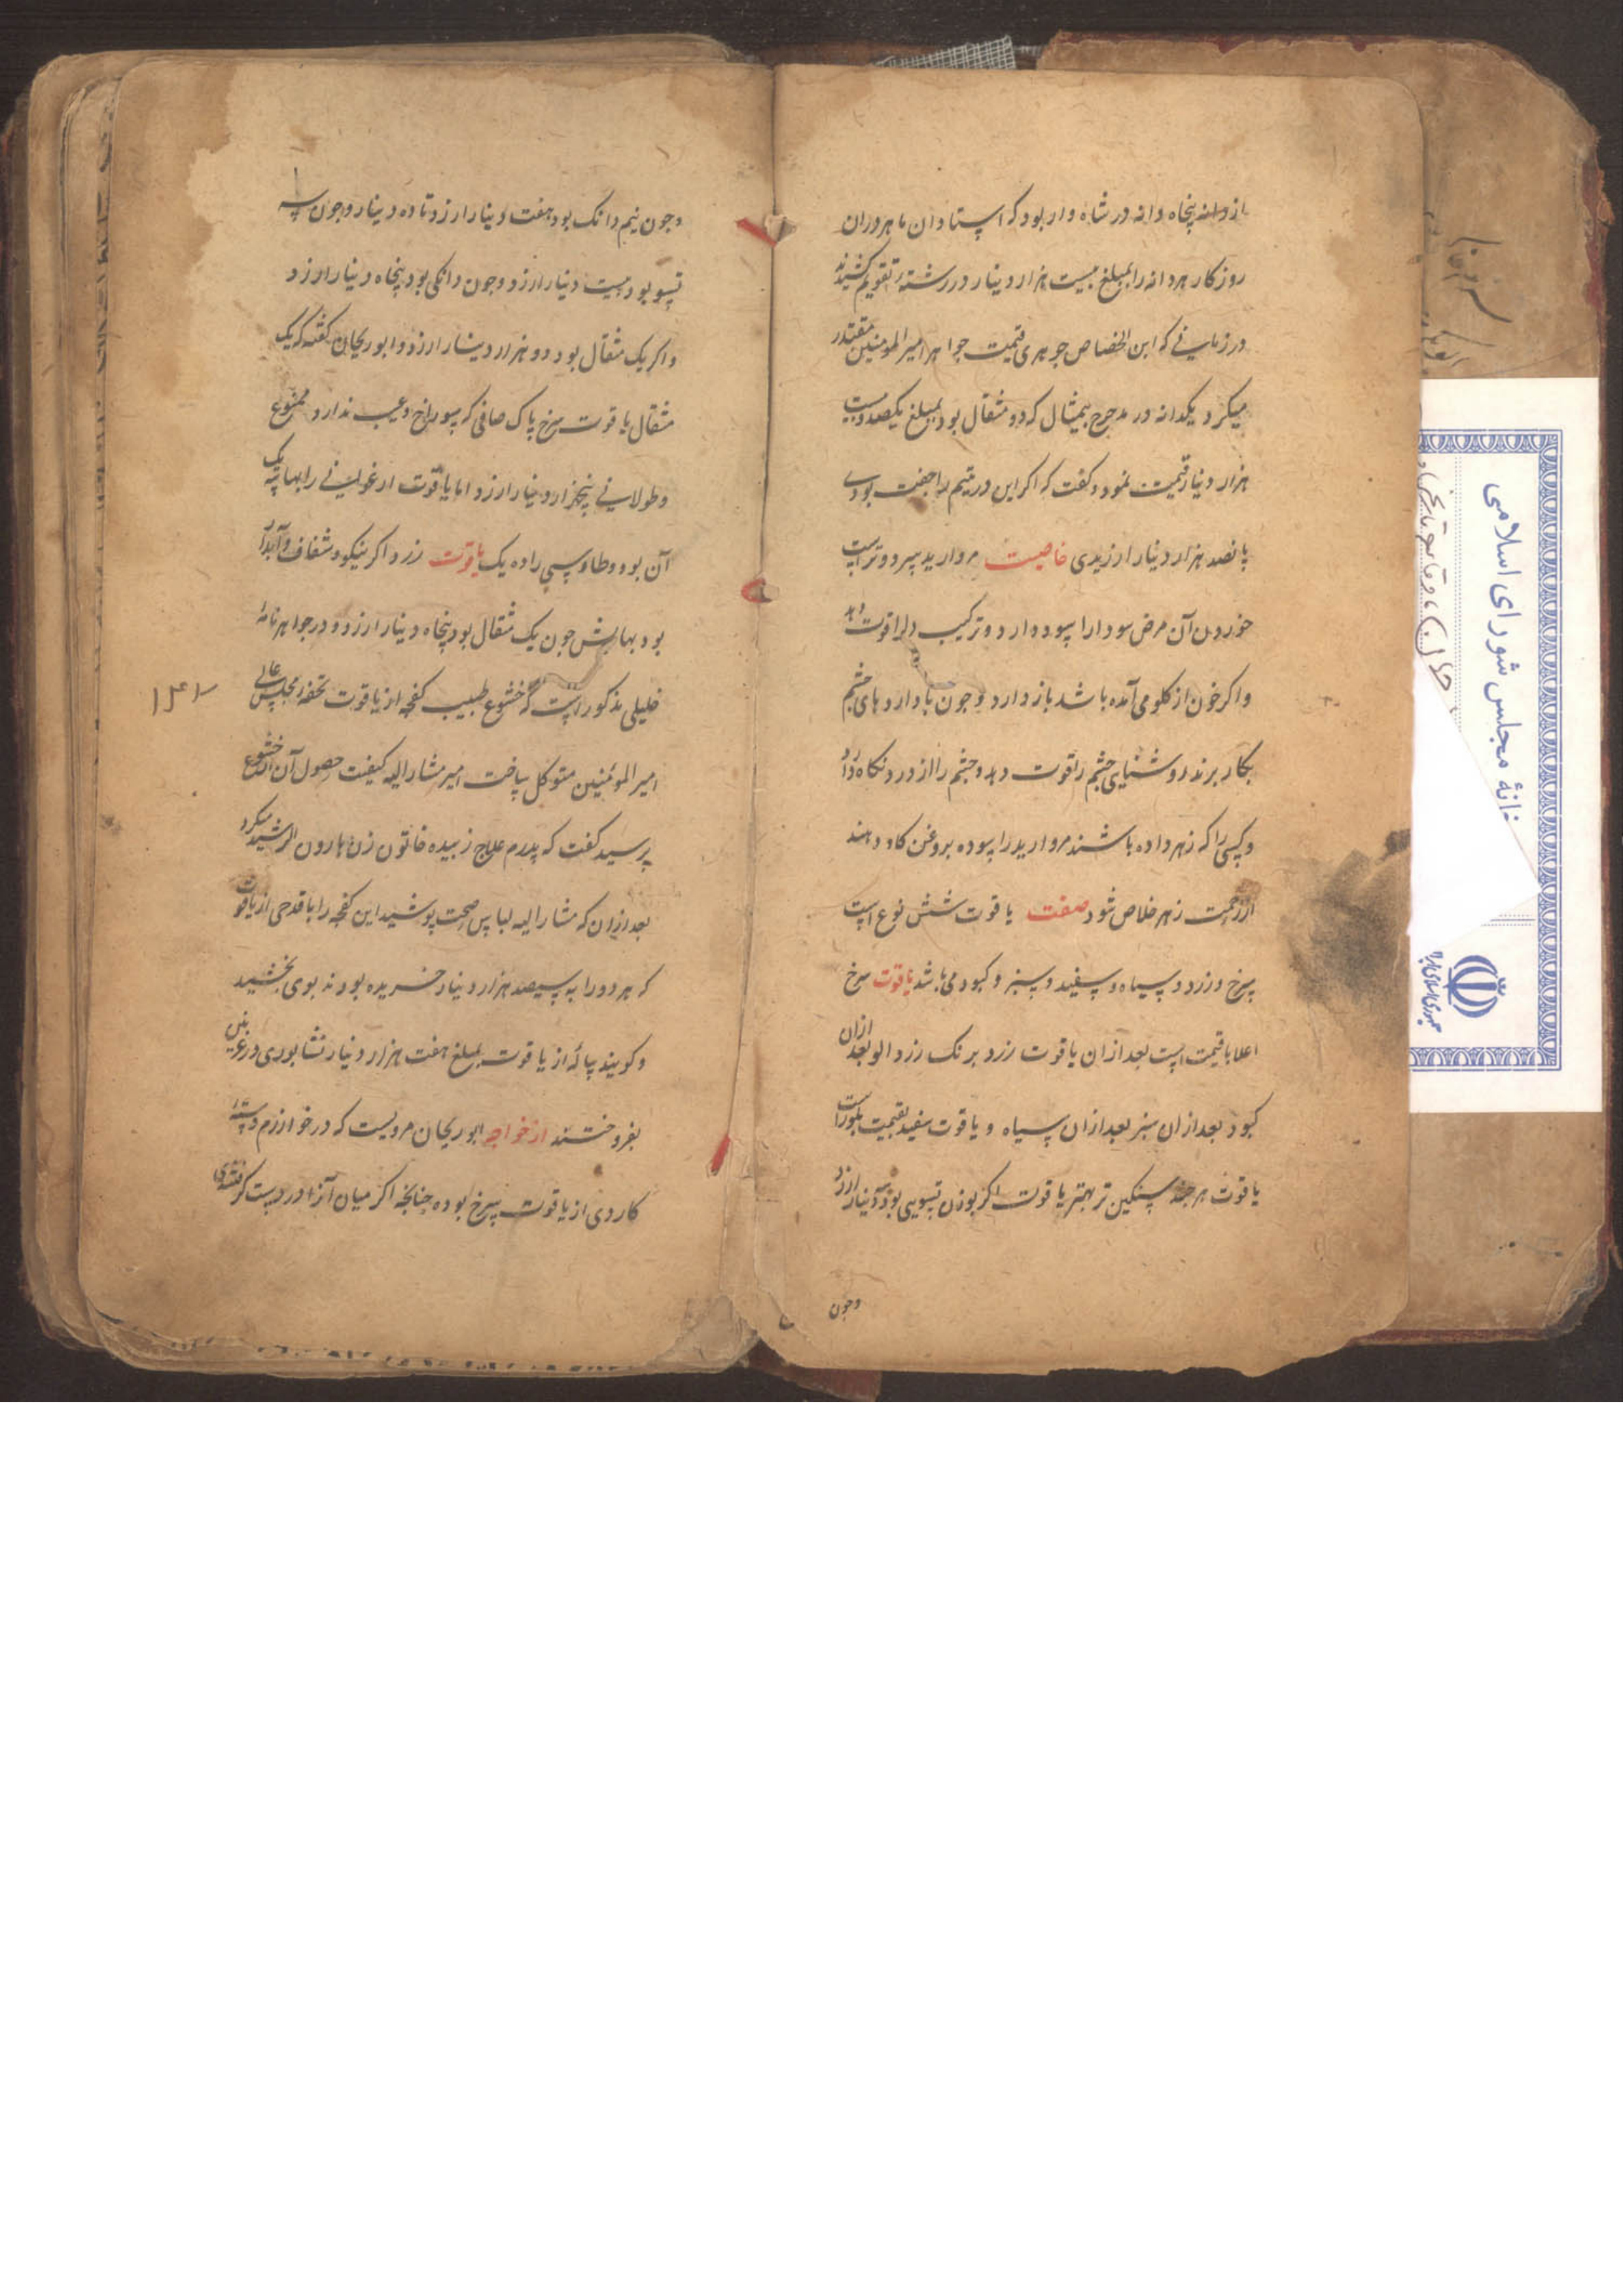 ازو دانه پنجاه دانه در شاه وار بود که استادان ماهر دران
روزکار هر دانه را بمبلغ بیست هزار دینار در رشته تقویم کشیدند
در زمانی که ابن الخصاص جوهری قیمت جواهر امیر المومنین مقتدر
میکرد یکدانه در مدحرج بیمثال که دو مثقال بود بمبلغ یکصد و بیست
هزار دینار قیمت نمود و کفت که اکر این در یتیم را جفت بودی
پانصد هزار دینار ارزیدی خاصیت مروارید سرد و ترست
خوردن آن مرض سودا را سود دارد و ترکیب دل را قوت دهد
واکر خون از کلو می آمده باشد باز دارد و جون با داروهای جشم
بکار برند روشنیای جشم را قوت دهد و جشم را از درد نکاه دارد
وکسی را که زهر داده باشند مروارید را سوده بروغن کاو دهند
از زحمت زهر خلاص شود صفت یاقوت شش نوع است
سرخ و زرد و سیاه و سفید و سبز و کبود می باشد یاقوت سرخ
اعلا با قیمت است بعد ازان یاقوت زرد برنک زرد الو بعد ازان
کبود بعد ازان سبز بعد ازان سیاه و یاقوت سفید بقیمت بلورست
یاقوت هرجند سنکین تر بهتر یاقوت اکر بوزن تسویی بود سه دینار ارزد
وجون
وجون نیم دانک بود هفت دینار ارزد تا ده دینار وجون سه
تسو بود بیست دینار ارزد وجون دانکی بود پنجاه دینار ارزد
واکر یک مثقال بود دو هزار دینار ارزد و ابوریحان کفته که یک
مثقال یاقوت سرخ پاک صافی که سوراخ و عیب ندارد ممنوع
وطولانی پنجهزار دینار ارزد اما یاقوت ارغوانی را بها سه یک
آن بود و طاوسی را ده یک یاقوت زرد اکر نیکو و شفاف و آبدار
بود بهایش جون یک مثقال بود پنجاه دینار ارزد و در جواهر نامهٔ
خلیلی مذکور است که بخشوع طبیب کفجه از یاقوت تحفهٔ مجلس عالی
امیر المومنین متوکل ساخت امیر مشار الیه کیفیت حصول آن از بخشوع
پرسید کفت که پدرم علاج زبیده خاتون زن هارون الرشید میکرد
بعد ازان که مشار الیه لباس صحت پوشید این کفجه را با قدحی از یاقوت
که هر دو را به سیصد هزار دینار خریده بودند بوی بخشید
وکویند پیالهٔ از یاقوت بمبلغ هفت هزار دینار نشابوری در غزنین
بفروختند از خواجه ابوریحان مرویست که در خوارزم دستهٔ
کاردی از یاقوت سرخ بوده جنانجه اکر میان آنرا در دست کرفتندی
۱۳۲
خانهٔ مجلس شورای اسلامی
جمهوری اسلامی ایران